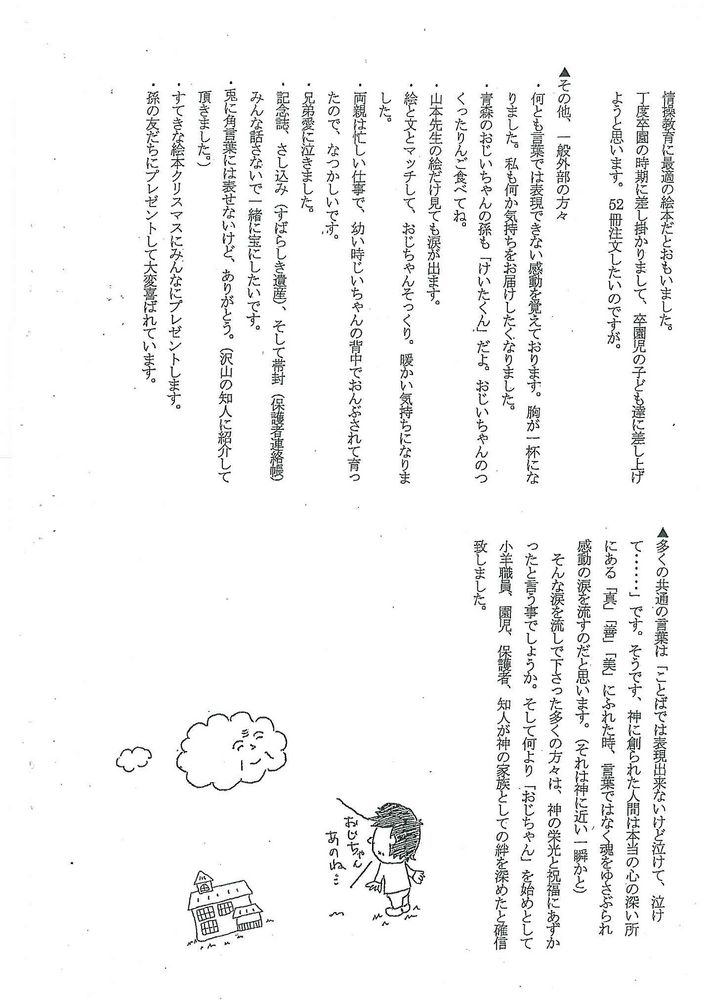 情操教育に最適の絵本だとおもいました。
丁度卒園の時期に差し掛かりまして、卒園児の子ども達に差し上げ
ようと思います。52冊注文したいのですが。
▲その他、一般外部の方々
・何とも言葉では表現できない感動を覚えております。胸が一杯にな
りました。私も何か気持ちをお届けしたくなりました。
・青森のおじいちゃんの孫も「けいたくん」だよ。おじいちゃんのつ
くったりんご食べてね。
・山本先生の絵だけ見ても涙が出ます。
・絵と文とマッチして、おじちゃんそっくり。暖かい気持ちになりま
した。
・両親は忙しい仕事で、幼い時じいちゃんの背中でおんぶされて育っ
たので、なつかしいです。
・兄弟愛に泣きました。
・記念誌、さし込み（すばらしき遺産）、そして帯封（保護者連絡帳）
みんな話さないで一緒に宝にしたいです。
・兎に角言葉には表せないけど、ありがとう。（沢山の知人に紹介して
頂きました。）
・すてきな絵本クリスマスにみんなにプレゼントします。
・孫の友だちにプレゼントして大変喜ばれています。
▲多くの共通の言葉は「ことばでは表現出来ないけど泣けて、泣け
て……」です。そうです、神に創られた人間は本当の心の深い所
にある「真」「善」「美」にふれた時、言葉ではなく魂をゆさぶられ
感動の涙を流すのだと思います。（それは神に近い一瞬かと）
そんな涙を流して下さった多くの方々は、神の栄光と祝福にあずか
ったと言う事でしょうか。そして何より「おじちゃん」を始めとして
小羊職員、園児、保護者、知人が神の家族としての絆を深めたと確信
致しました。
おじちゃん
あのね…